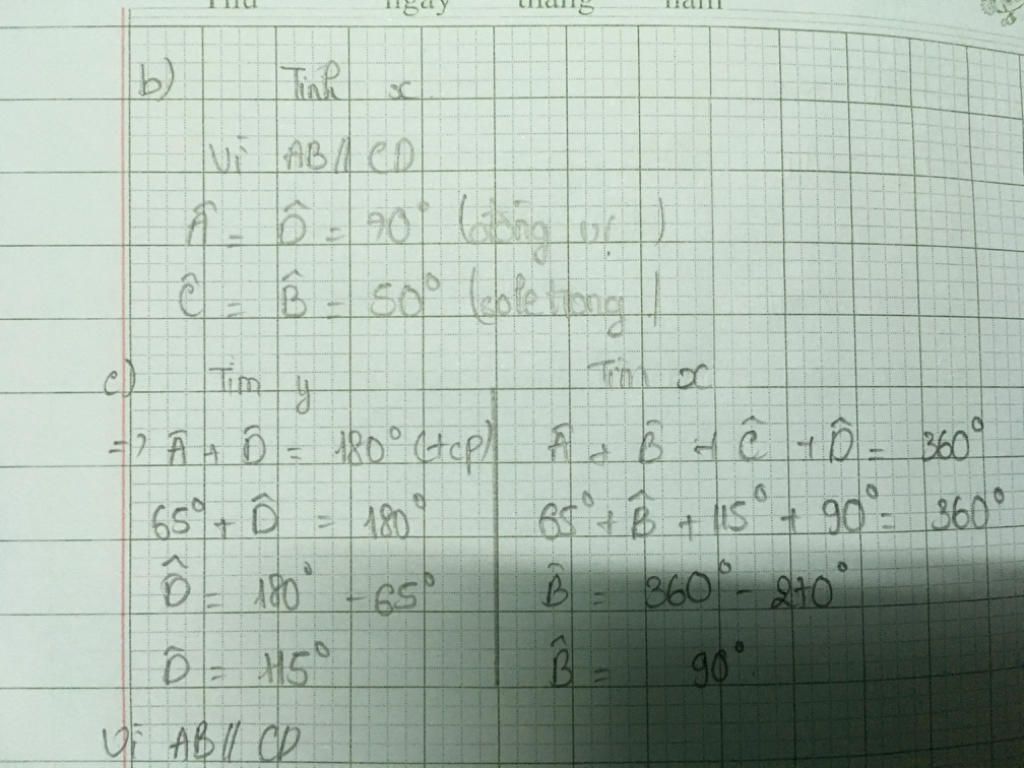 Thứ ngày tháng năm
b) Tính x
Vì AB // CD
Â = D̂ = 70° (đồng vị)
Ĉ = B̂ = 50° (sole trong)
c) Tìm y
=> Â + D̂ = 180° (tcp)
65° + D̂ = 180°
D̂ = 180° - 65°
D̂ = 115°
Tính x
Â + B̂ + Ĉ + D̂ = 360°
65° + B̂ + 115° + 90° = 360°
B̂ = 360° - 270°
B̂ = 90°
Vì AB // CD